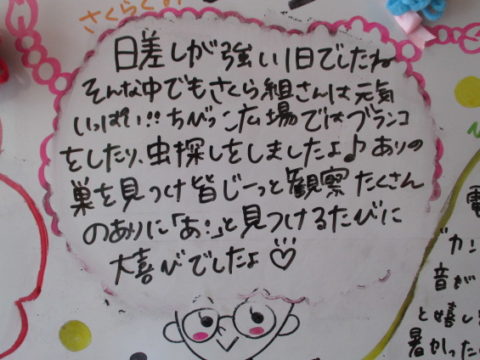 さくらぐみ
日差しが強い1日でしたね
そんな中でもさくら組さんは元気
いっぱい!!ちびっこ広場ではブランコ
をしたり、虫探しをしましたよ♪ありの
巣を見つけ皆じーっと観察 たくさん
のありに「あ!」と見つけるたびに
大喜びでしたよ♡
電
ガ
音が
と嬉し
暑かった